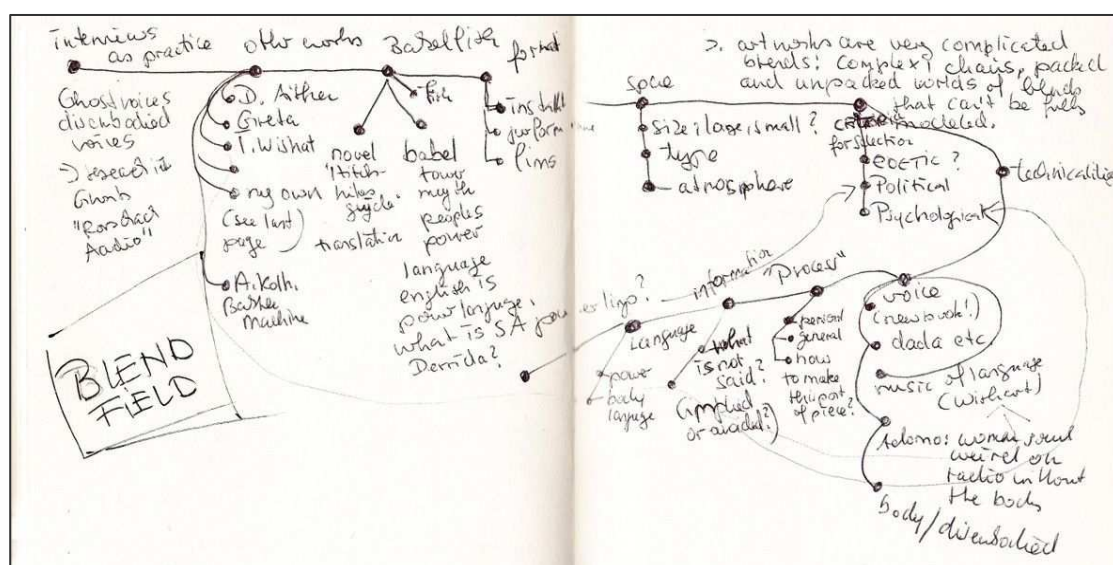 interviews
as practice
Ghostvoices
disembodied
voices
Ghosts
other works
D. Aither
Greta
T. Wishat
my own
(see last
page)
A. Kolk.
Basher
Machine
Babelfish
fish
novel
translation
babel
tower
myth
peoples
power
language
english is
power language.
what is SA power lingo?
Derrida?
format
films
BLEND
FIELD
space
size: large, small?
type
atmosphere
artworks are very complicated
blends: complex? chains, packed
and unpacked worlds of blends
that can't be fully
modeled.
for selection
POETIC?
Political
Psychological
technicalities
information
"Process"
Language
power
body
language
what
is not
said?
(implied
or avoided?)
general
how
to make
this part
of piece?
voice
(new book!)
dada etc
music of language
(Wishart)
Adorno: woman sound
weird on
radio without
the body
body/disembodied